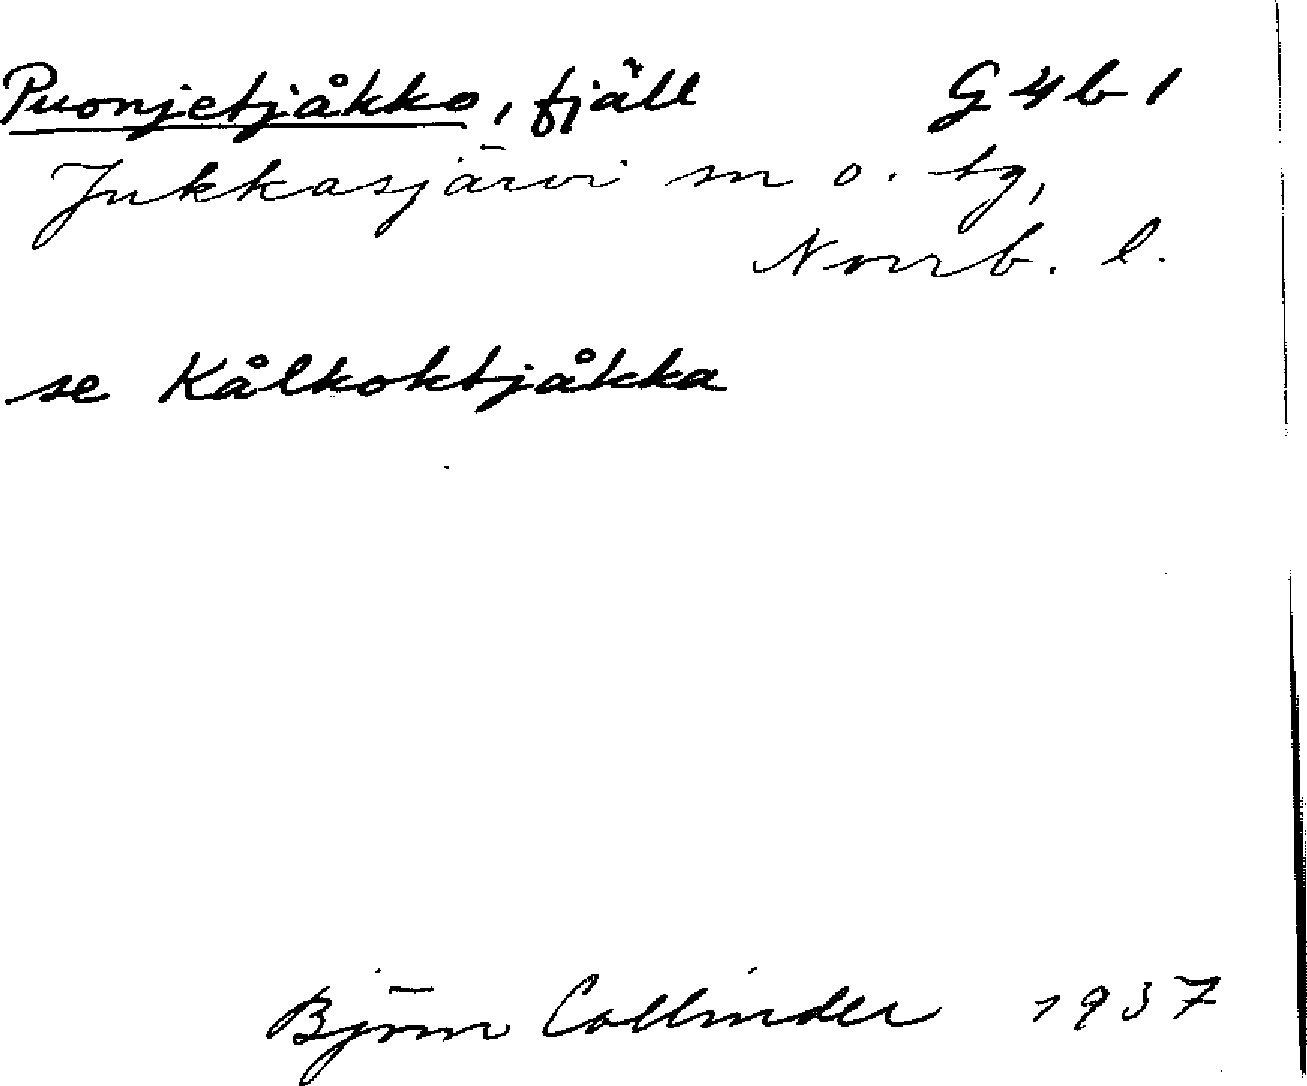 Puonjetjåkko, fjäll G4b1
Jukkasjärvi sn o. tg,
Norrb. l.
se Kålkoktjåkka
Björn Collinder 1937